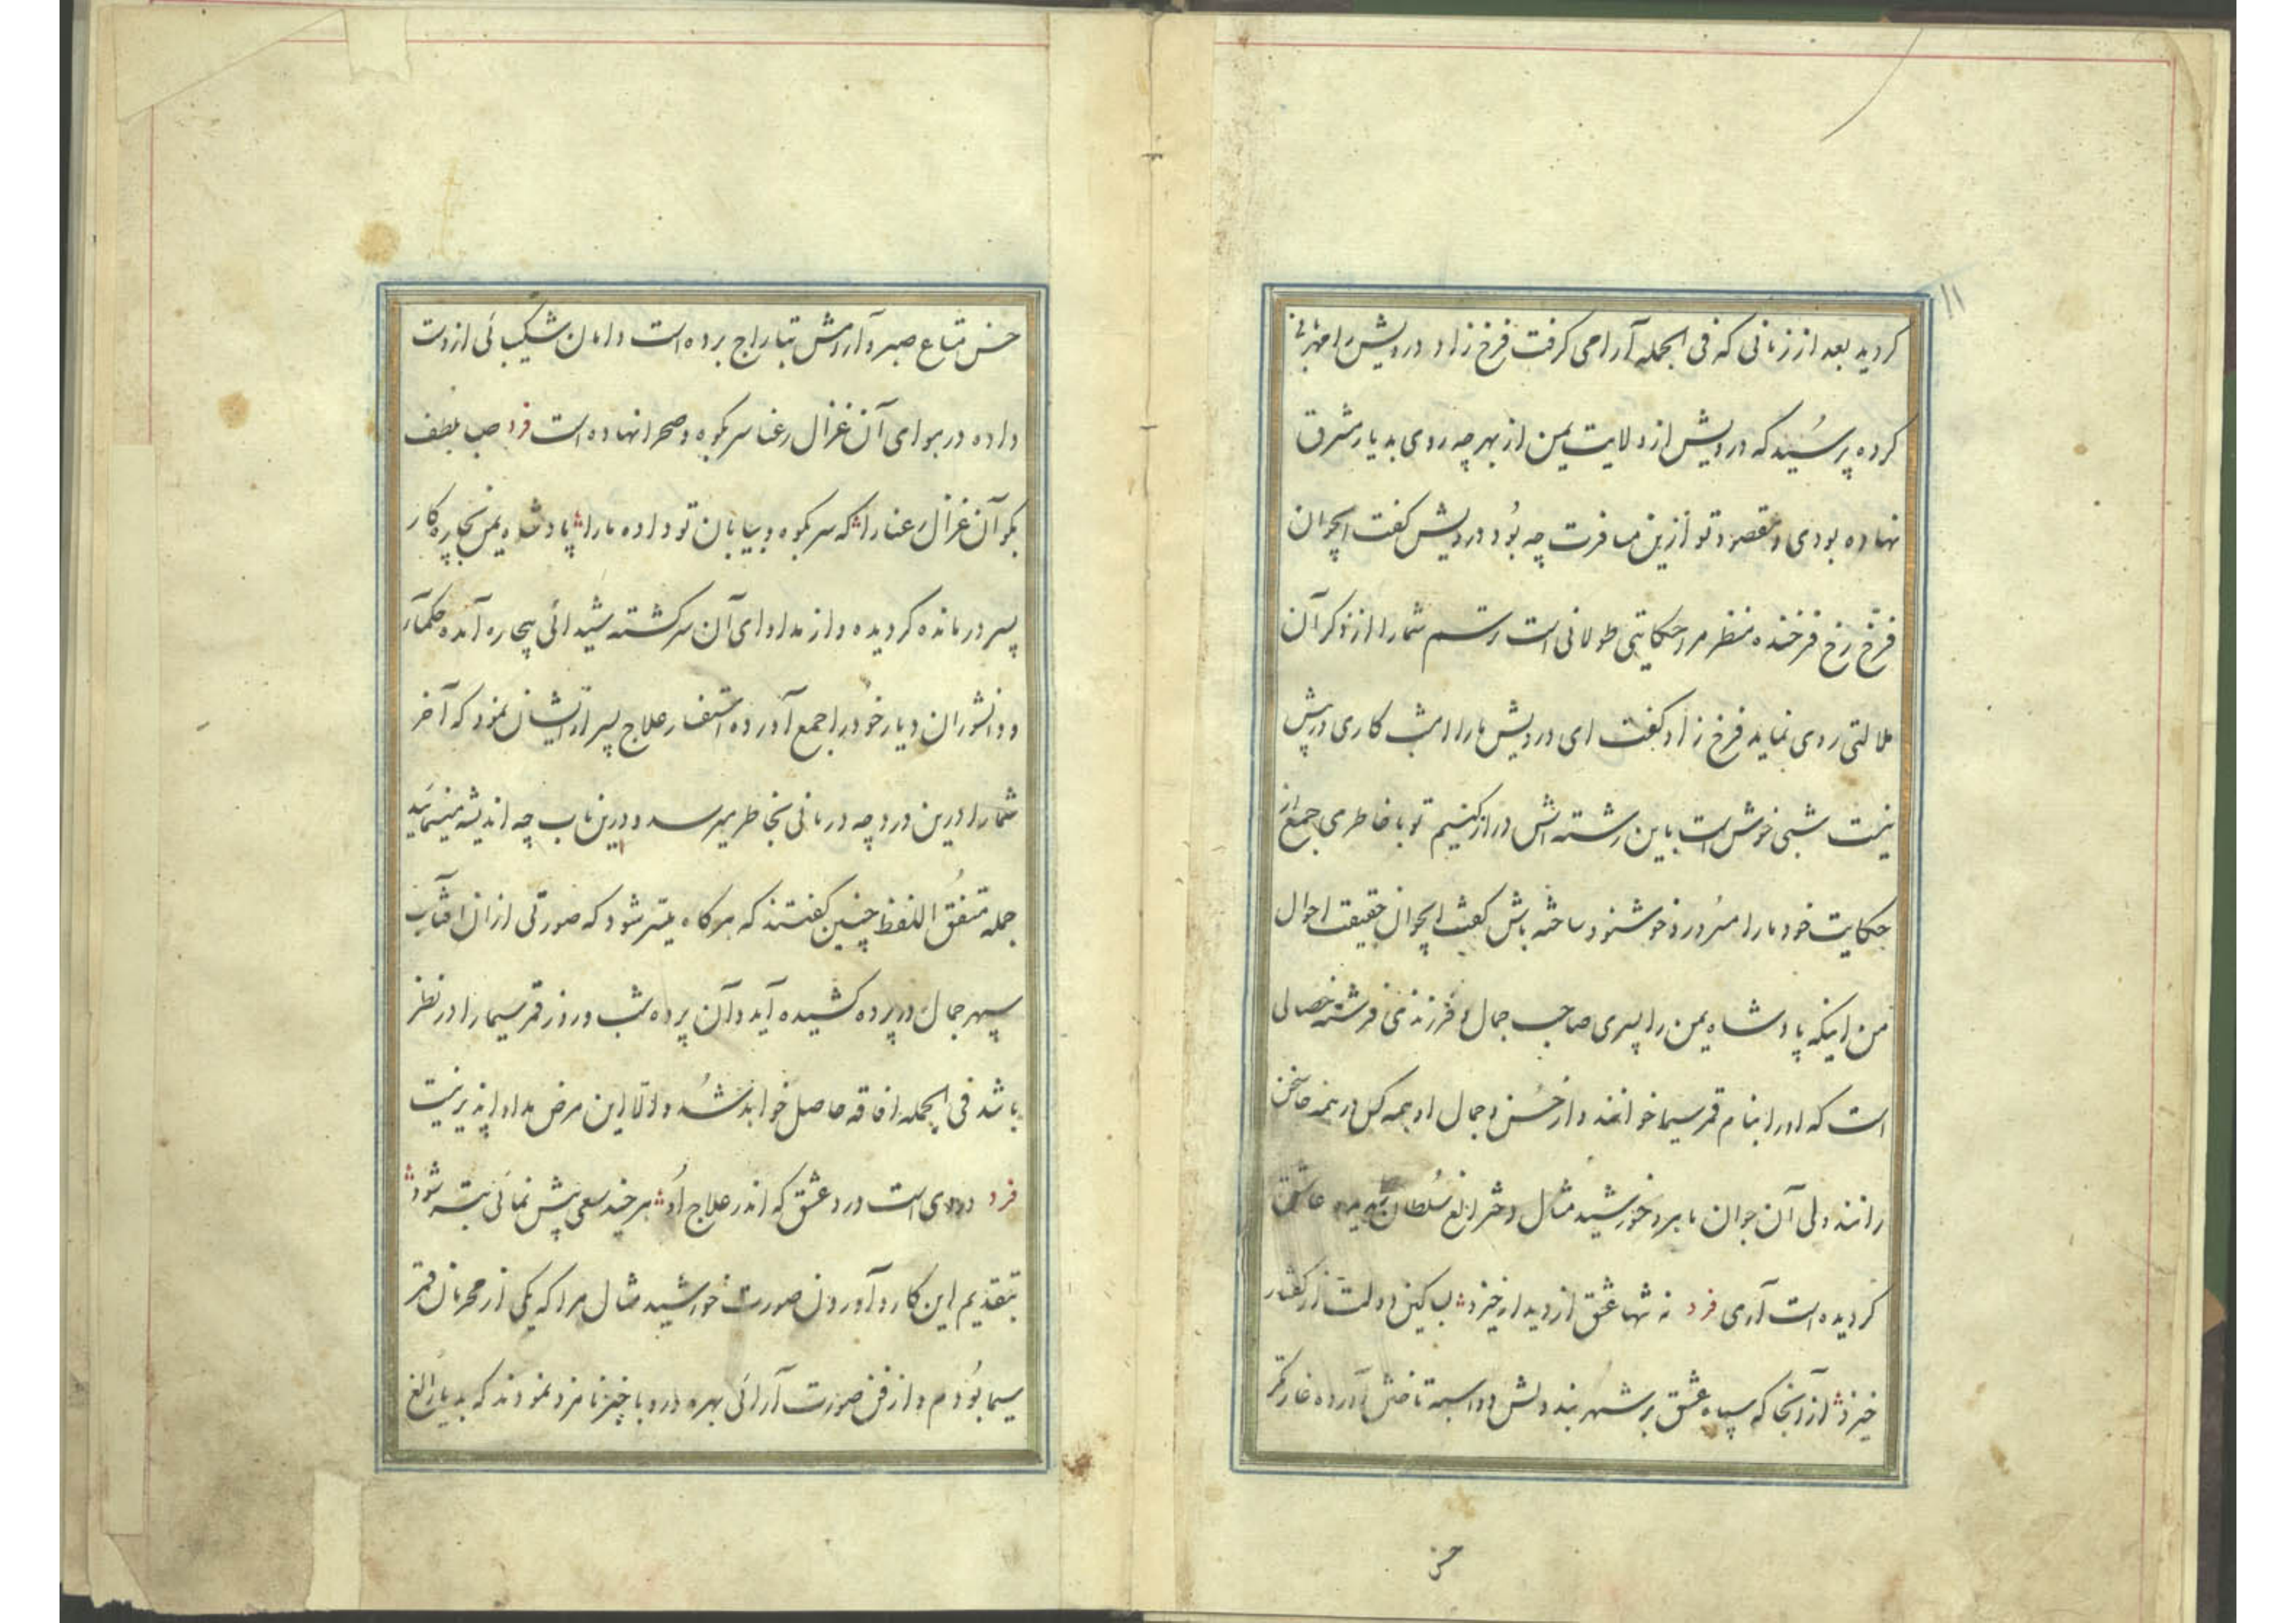 ۱۱
کردید بعد از زمانی که فی الجمله آرامی کرفت فرخ زاد درویش را مهربانی
کرده پرسید که درویش از ولایت یمن از بهر چه روی بدیار مشرق
نهاده بودی و مقصود تو ازین مسافرت چه بود درویش کفت ایجوان
فرخ رخ فرخنده منظر مرا حکایتی طولانی است رتسم شما را از ذکر آن
ملالتی روی نماید فرخ زاد کفت ای درویش ما را امشب کاری در پیش
نیست شبی خوش است باین رشته اش دراز کنیم تو با خاطری جمع از
حکایت خود ما را مسرور و خوشنود ساخته باش کفت ایجوان حقیقت احوال
من اینکه پادشاه یمن را پسری صاحب جمال و فرزندی فرشته خصالی
است که او را بنام قمر سیما خوانند و از حسن و جمال او همه کس در همه جا سخن
رانند ولی آن جوان ماهرو خورشید مثال دختر الغ سلطان عاشق
کردیده است آری فرد نه تنها عشق از دیدار خیزد بسا کین دولت از کفتار
خیزد از آنجا که سپاه عشق بر شهر بند دلش دو اسبه تاختن آورده غارتکر
حسن
حسن متاع صبر و آرامش بتاراج برده است دامان شکیبائی از دست
داده در هوای آن غزال رعنا سر بکوه و صحرا نهاده است فرد صبا بلطف
بکو آن غزال رعنا را که سر بکوه و بیابان تو داده ما را پادشاه یمن بچاره کار
پسر در مانده کردیده و از مداوای آن سرکشته شیدائی بیچاره آمده حکما
و دانشوران دیار خود را جمع آورده استفسار علاج پسر از ایشان نمود که آخر
شما را درین درد چه درمانی بخاطر میرسد و درین باب چه اندیشه مینمائید
جمله متفق اللفظ چنین کفتند که هر کاه میسر شود که صورتی از ان افتاب
سپهر جمال در پرده کشیده آید و آن پرده شب و روز قمر سیما را در نظر
باشد فی الجمله افاقه حاصل خواهد شد و الا این مرض مداوا پذیر نیست
فرد دردی است درد عشق که اندر علاج او هر چند سعی بیش نمائی بتر شود
بتقدیم این کار و آوردن صورت خورشید مثال مرا که یکی از محرمان قمر
سیما بودم و از فن صورت آرائی بهره دارد باچیز نامزد نمودند که بدیار الغ